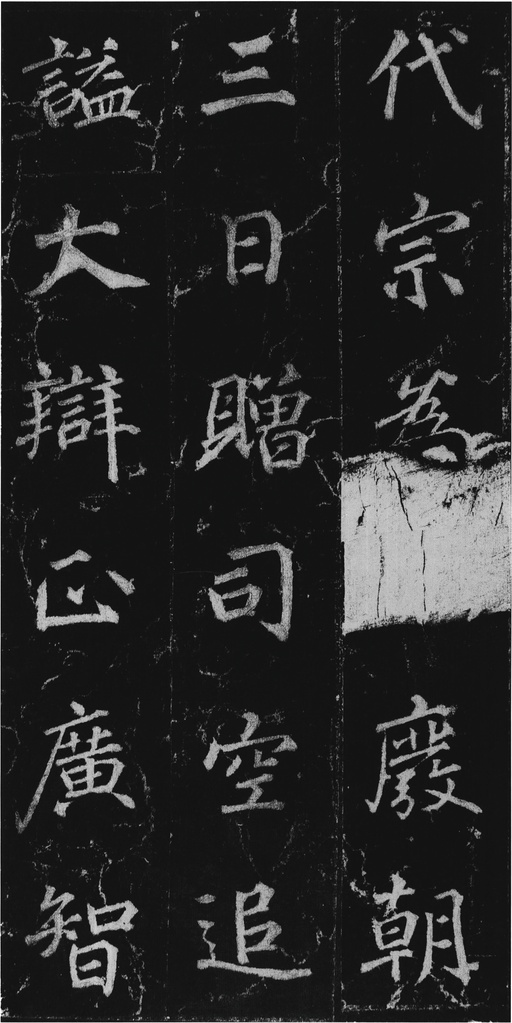 代宗為廢朝
三日贈司空追
諡大辯正廣智